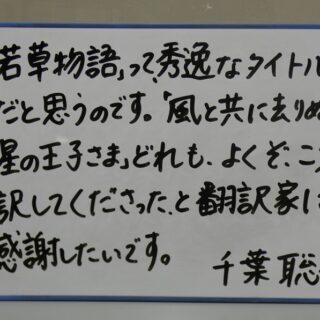 若草物語」って秀逸なタイトル
だと思うのです。「風と共に去りぬ
星の王子さま」どれも、よくぞ、こう
訳してくださった、と翻訳家に
感謝したいです。
千葉 聡